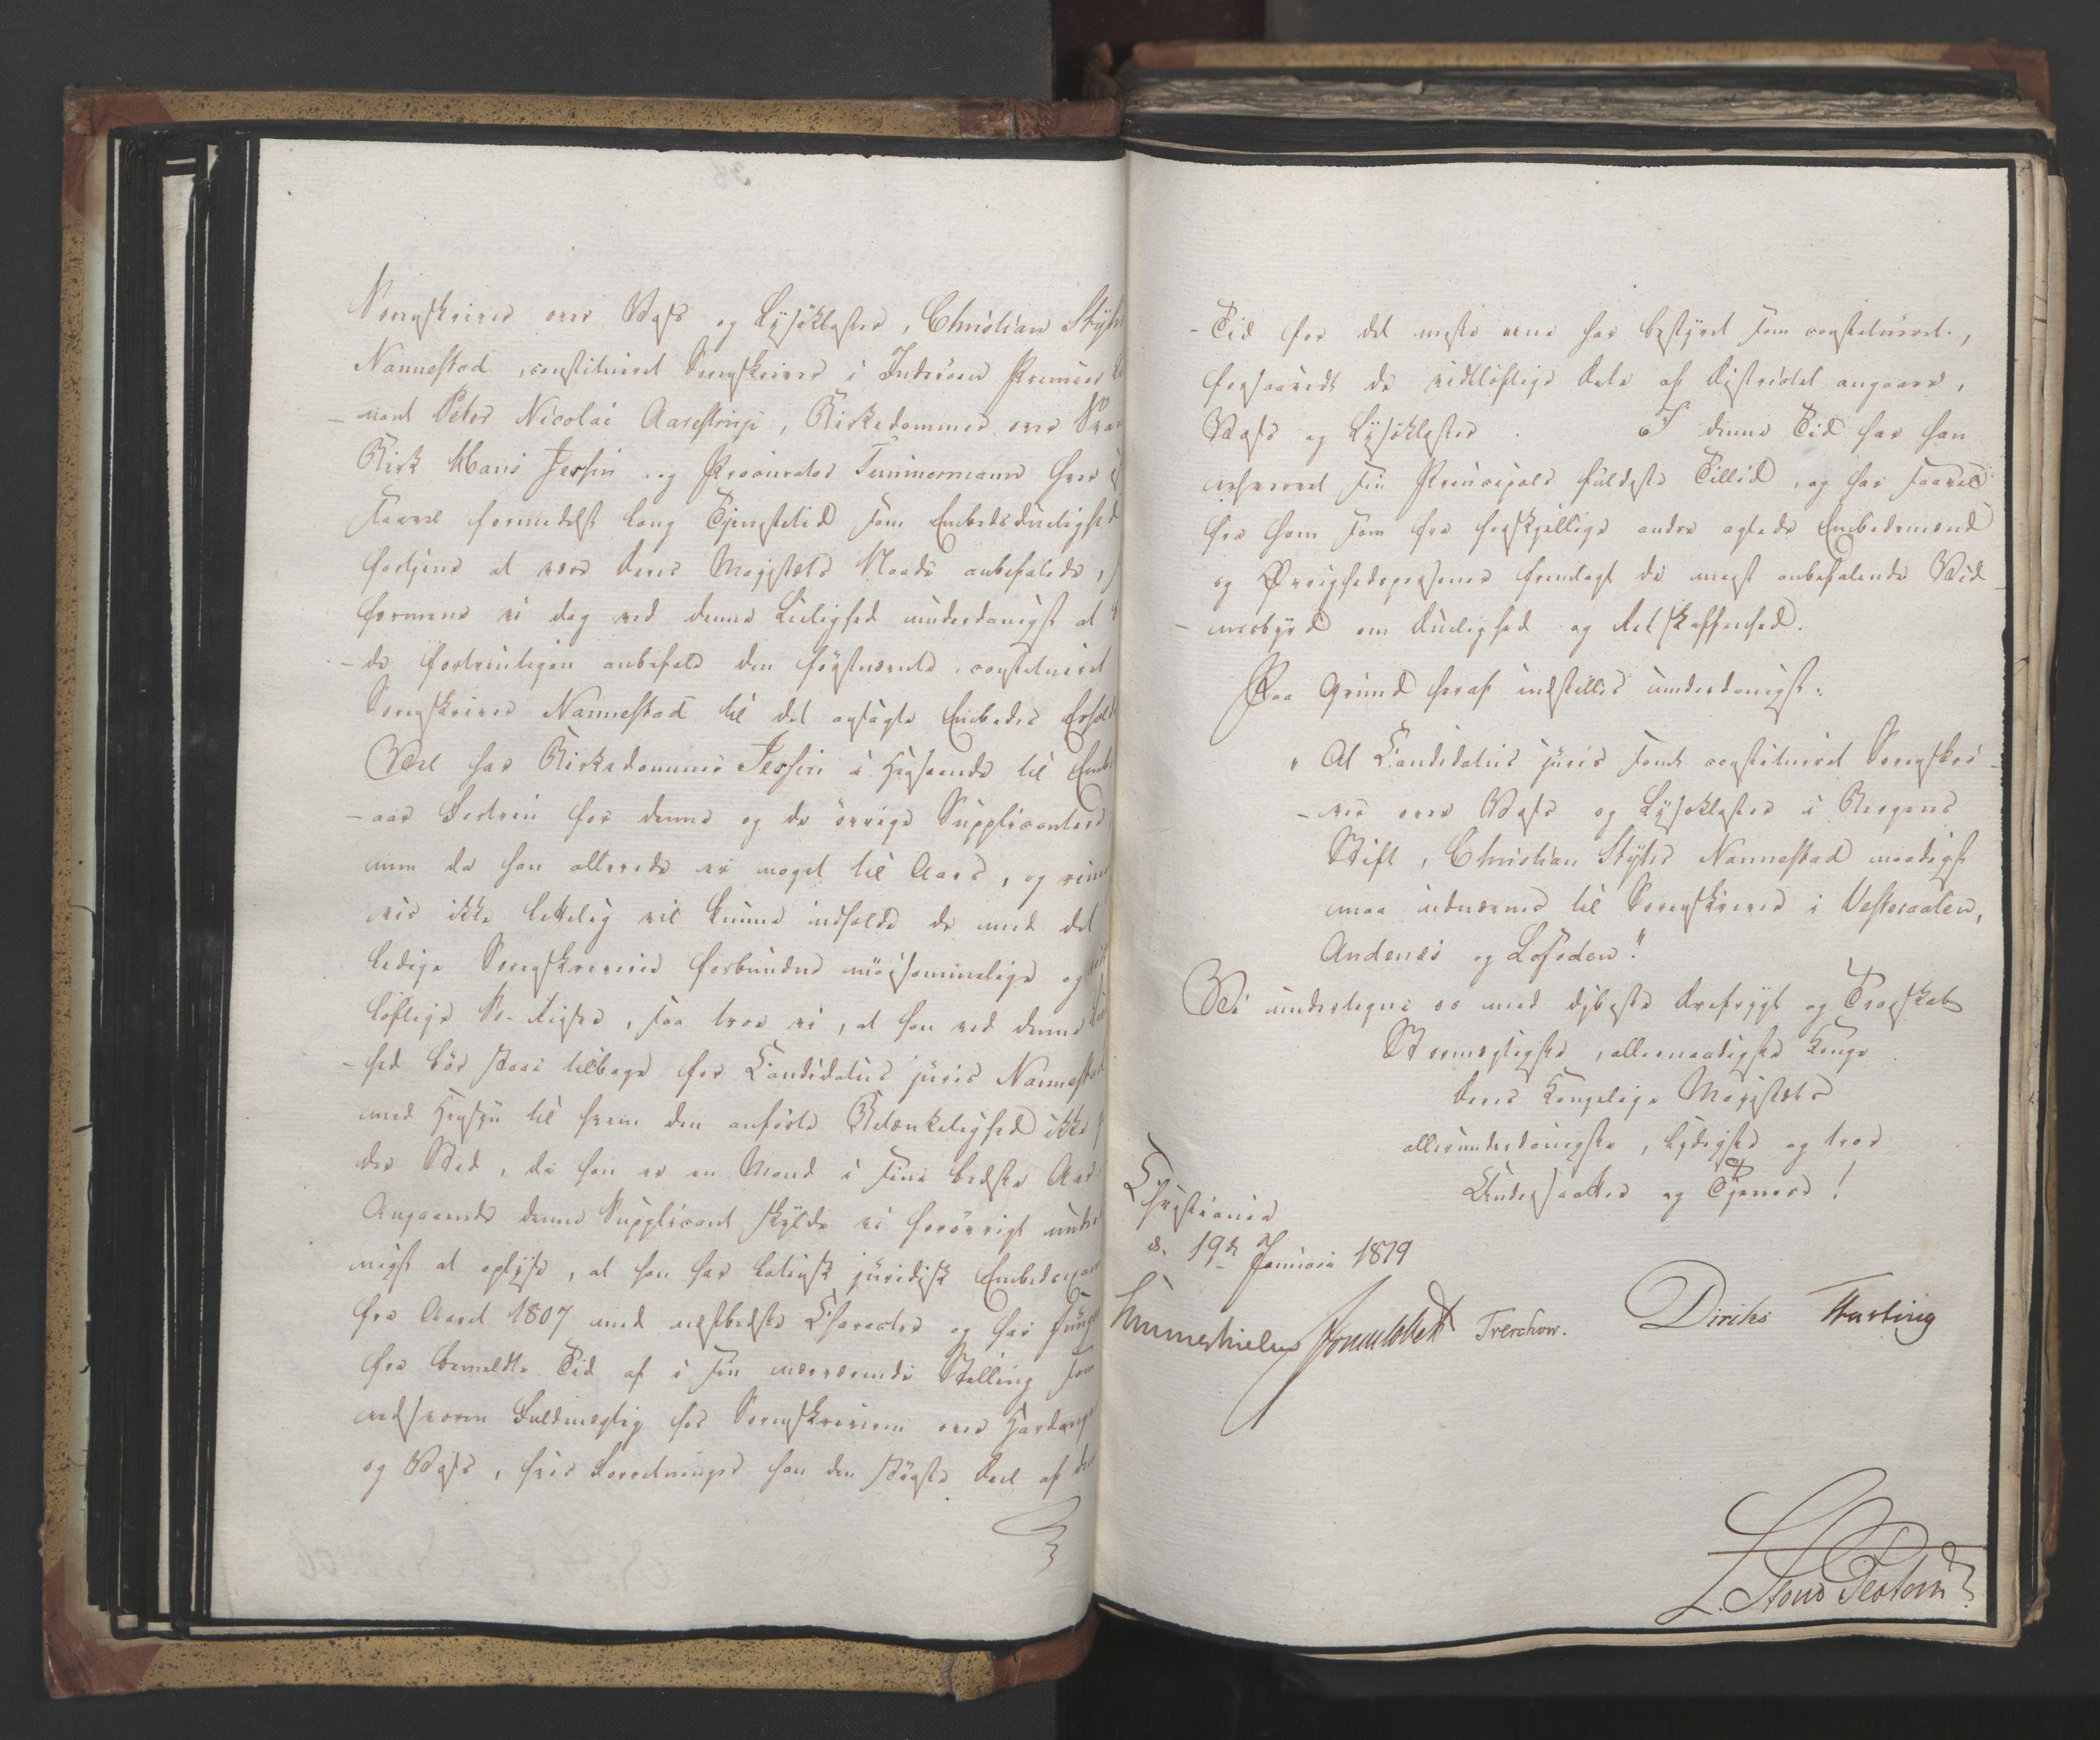 Sorenskriver over Voss og Lysökloster, Christian Stÿh
Nannestad, constitueret Sorenskriver i Inderöen Premier
nant Peter Nicolai Aarestrup, Birkedommer over
Birk Hans Jessen og Procurator Timmermann hver
saavel formedelst lang Tjenestetid som Embedsduelighed
fortjene at være Deres Majestæts Naade anbefalede,
formene vi dog ved denne Leilighed underdanigst at
de fortrinligen anbefale den förstnævnte, constitueret
Sorenskriver Nannestad til det ansögte Embedes Erholdelse
Vel har Birkedommer Jessen i Henseende til Embeds
aar Fortrin for denne og de övrige Supplicantere,
men da han allerede er noget til Aars, og
viis ikke letteligt vil kunne udholde de med det
ledige Sorenskriverie forbundne möisommelige og
löftige Sö-Reiser, saa troe vi, at han ved denne
hed bör staae tilbage for Candidatus juris Nannestad
med Hensyn til hvem den anförte Betænkelighed ikke
der Sted, da han er en Mand i sin bedste Alder.
Angaaende denne Supplicant skulde vi forövrigt under
nigst at oplyse, at han har latinsk juridisk Embedsexamen
fra Aaret 1807 med næstbedste Character og har
fra bemeldte Tid af i sin nærværende Stilling som
edsvoren Fuldmægtig hos Sorenskriveren over Hardanger
og Voss, hvis Forretninger han den störste Deel af den
Tid for det meste ene har bestyret som constitueret,
forsaavidt de vidtlöftige Dele af Districtet angaaer,
Voss og Lysökloster. I denne Tid har han
erhvervet sin Principals fuldeste Tillid, og har saavel
fra ham som fra forskjellige andre agtede Embedsmænd
og Övrighedspersoner fremlagt de meest anbefalende Vid
nesbyrd om Duelighed og Retskaffenhed.
Paa Grund heraf indstilles underdanigst:
"At Candidatus juris samt constitueret Sorenskri
ver over Voss og Lysökloster i Bergens
Stift, Christian Stÿhr Nannestad naadigst
maa udnævnes til Sorenskriver i Vesteraalen,
Andenæs og Lofoden."
Vi undertegne os med dybeste Ærefrygt og Troeskab
Stormægtigste, allernaadigste Konge
Deres Kongelige Majestæts
allerunderdanigste, lydigste og troe
Undersaatter og Tjenere!
Christiania
d. 19de Januarii 1819
Hummerhielm Sommerfeldt Treschow. Diriks Hasting
L. Stoud Platou